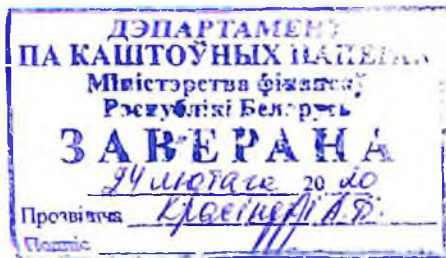 ДЭПАРТАМЕНТ
ПА КАШТОЎНЫХ ПАПЕРАХ
Міністэрства фінансаў
Рэспублікі Беларусь
ЗАВЕРАНА
24 лютага 20 20
Прозвішча
Подпіс